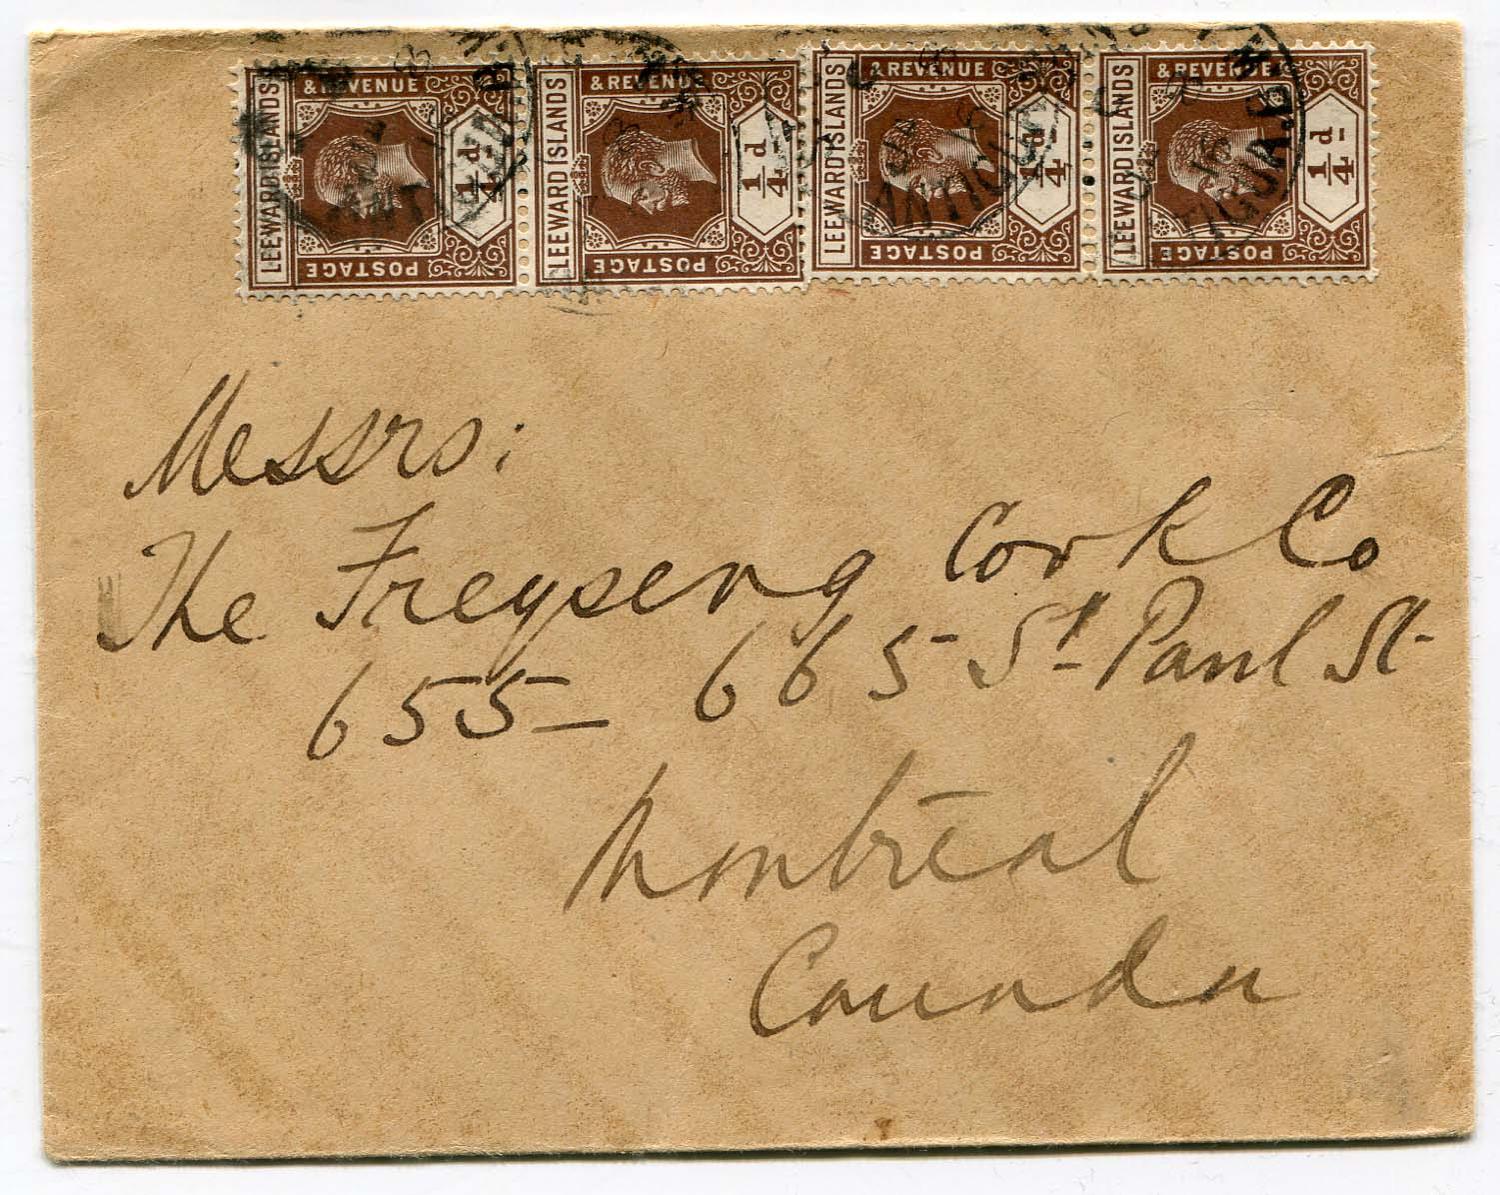 LEEWARD ISLANDS & REVENUE POSTAGE 1/4d
LEEWARD ISLANDS & REVENUE POSTAGE 1/4d
LEEWARD ISLANDS & REVENUE POSTAGE 1/4d
LEEWARD ISLANDS & REVENUE POSTAGE 1/4d
ANTIGUA
Messrs:
The Freyseng Cork Co
655- 665 St Paul St-
Montreal
Canada